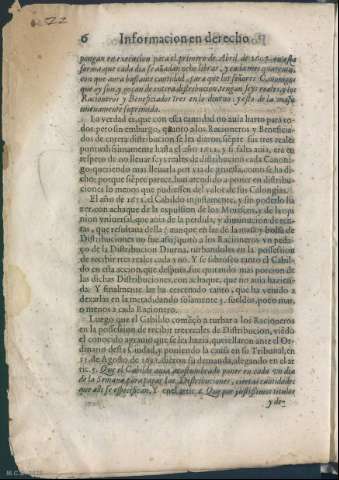 6 Informacion en derecho
pongan en execucion para el primero de Abril de 1603. en esta
forma que cada dia se añadan ocho libras, y cada mes quarenta,
con que aura bastante cantidad, para que los señores Canonigos
que ay son, y gozan de entera distribucion, tengan seys reales, y los
Racioneros y Beneficiados tres en lo diurno: y esta de la massa
nueuamente suprimada.
Lo verdad es, que con essa cantidad no auia harto para to
dos: pero sin embargo, quanto a los Racioneros y Beneficia-
dos de entera distribucion se les dieron siempre sus tres reales
puntualissimamente hasta el año 1612, y si falta auia, era en
respeto de no lleuar seys reales de distribucion cada Canoni-
go: queriendo mas lleuarla por via de gruessa, como se ha di-
cho; porque siempre parece, han atendido a poner en distribu-
ciones lo menos que pudiessen del valor de sus Calongias.
El año de 1612, el Cabildo injustamente, y sin poderlo ha
zer, con achaque de la expulsion de los Moriscos, y de la opi
nion vniuersal, que auia de la perdida, y diminucion de ren-
tas, que resultaua della (aunque en las de la massa y bolsa de
Distribuciones no fue assi) quitò a los Racioneros vn peda-
ço de la Distribucion Diurna, turbandoles en la possession
de recibir tres reales cada vno. Y se saboreò tanto el Cabil-
do en esta accion, que despues fue quitando mas porcion de
las dichas Distribuciones, con achaque, que no auia hazien-
da: Y finalmente las ha cercenado tanto, que ha venido a
dexarlas en la metad, dando solamente 3. sueldos, poco mas,
o menos a cada Racionero.
Luego que el Cabildo començò a turbar a los Racioneros
en la possession de recibir tres reales de Distribucion, viẽdo
el conocido agrauio que se les hazia, querellaron ante el Or-
dinario desta Ciudad, y poniendo la causa en su Tribunal, en
de Agosto, de dieron su demanda, alegando en el ar
tic. 5. Que el Cabildo auia acostumbrado poner en cada vn dia
de la Semana para pagar las Distribuciones, ciertas cantidades
que alli se especifican. Y en el artic. 6. Que por justissimos titulos
y de-